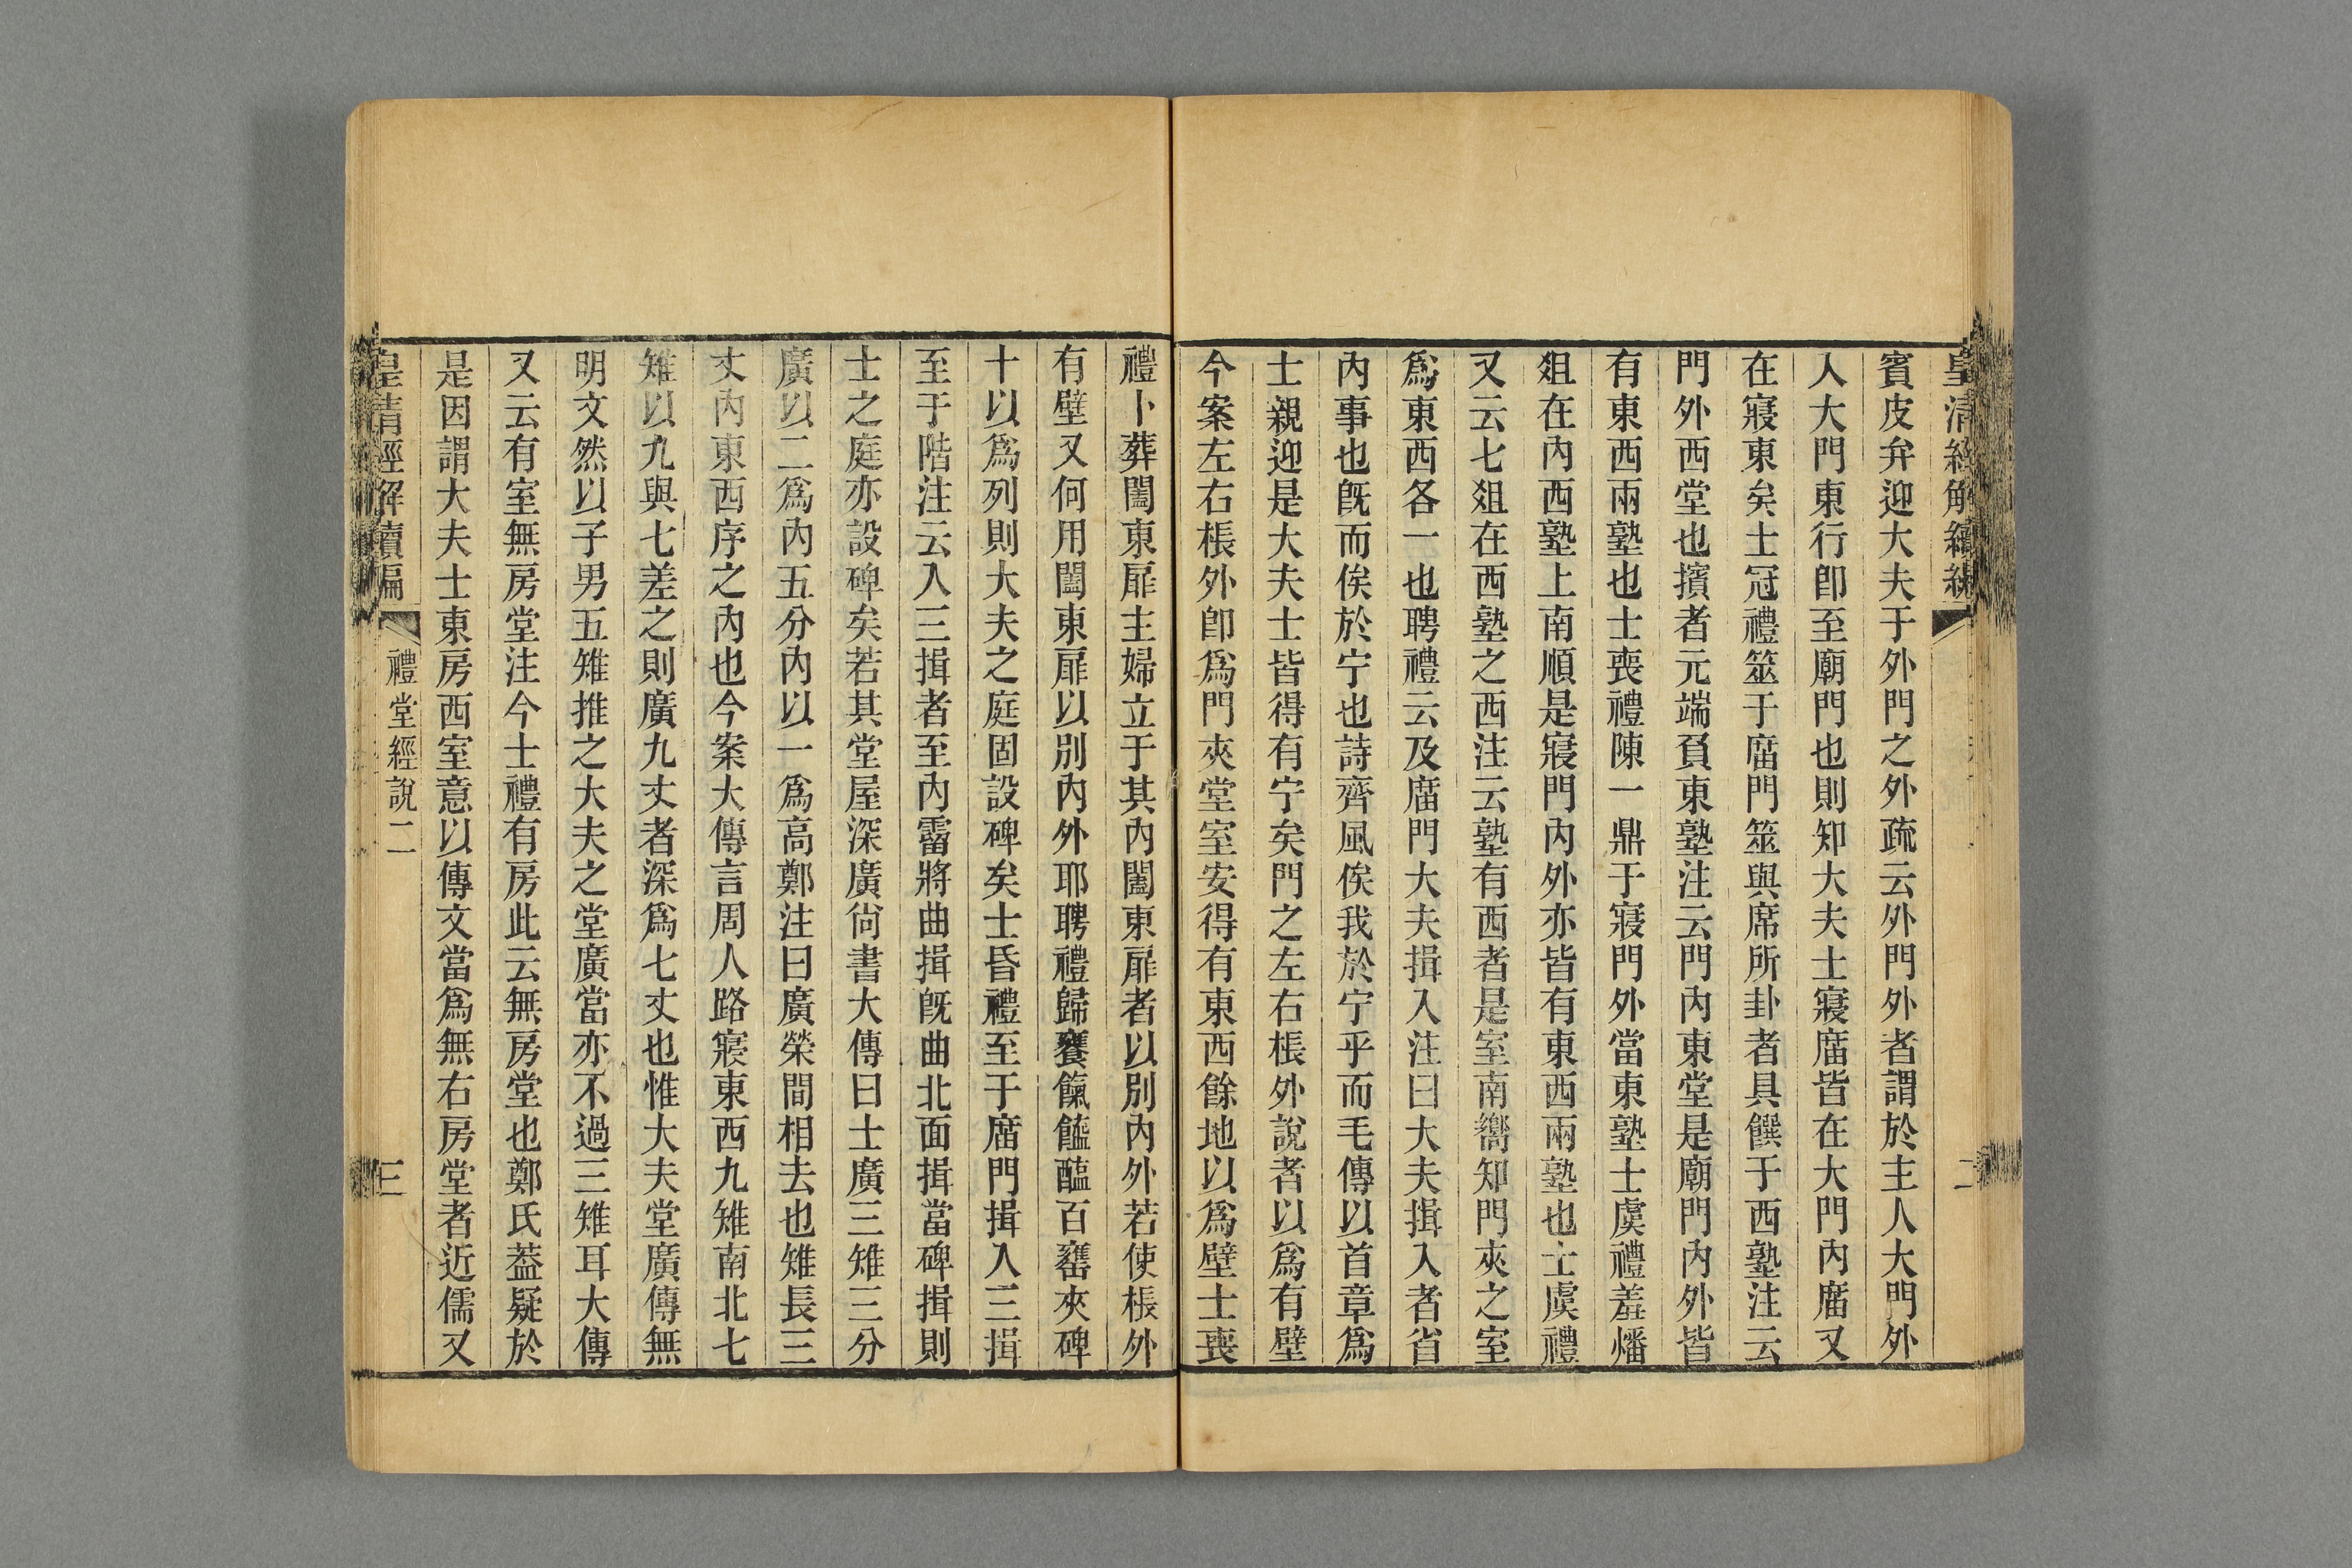 皇清經解續編
賓皮弁迎大夫于外門之外疏云外門外者謂於主人大門外
人大門東行卽至廟門也則知大夫士寢庿皆在大門內庿又
在寢東矣士冠禮筮于庿門筮與席所卦者具饌于西塾注云
門外西堂也擯者元端負東塾注云門內東堂是廟門內外皆
有東西兩塾也士喪禮陳一鼎于寢門外當東塾士虞禮羞燔
俎在內西塾上南順是寢門內外亦皆有東西兩塾也士虞禮
又云七俎在西塾之西注云塾有西者是室南嚮知門夾之室
爲東西各一也聘禮云及庿門大夫揖入注曰大夫揖入者省
內事也旣而俟於宁也詩齊風俟我於宁乎而毛傳以首章爲
士親迎是大夫士皆得有宁矣門之左右棖外說者以爲有壁
今案左右棖外卽爲門夾堂室安得有東西餘地以爲壁士喪
禮卜葬闔東扉主婦立于其內闔東扉者以別內外若使棖外
有壁又何用闔東扉以別內外耶聘禮歸饔餼醯醢百罋夾碑
十以爲列則大夫之庭固設碑矣士昏禮至于庿門揖入三揖
至于階注云入三揖者至內霤將曲揖旣曲北面揖當碑揖則
士之庭亦設碑矣若其堂屋深廣尙書大傳曰士廣三雉三分
廣以二爲內五分內以一爲高鄭注曰廣榮間相去也雉長三
丈內東西序之內也今案大傳言周人路寢東西九雉南北七
雉以九與七差之則廣九丈者深爲七丈也惟大夫堂廣傳無
明文然以子男五雉推之大夫之堂廣當亦不過三雉耳大傳
又云有室無房堂注今士禮有房此云無房堂也鄭氏葢疑於
是因謂大夫士東房西室意以傳文當爲無右房堂者近儒又
皇清經解續編
禮堂經說二
三